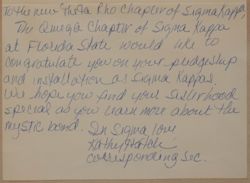 To the new Theta Rho Chapter of Sigma Kappa
The Omega Chapter of Sigma Kappa
at Florida State would like to
congratulate you on your pledgeship
and installation as Sigma Kappas.
We hope you find your sisterhood
special as you learn more about the
mystic bond.
In Sigma love
Kathy
Corresponding Sec.